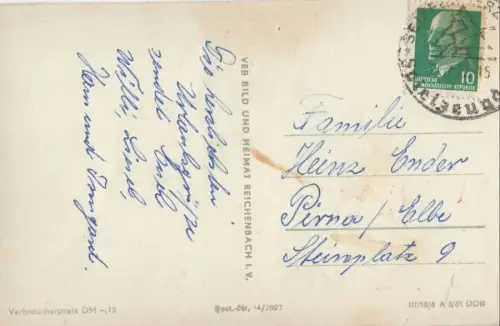 Die herzlichsten
Urlaubsgrüße
sendet Euch
Willi, Liesel,
Hans und Irmgard.
VEB BILD UND HEIMAT REICHENBACH I. V.
10
DEUTSCHE
DEMOKRATISCHE REPUBLIK
Familie
Heinz Ender
Pirna / Elbe
Steinplatz 9
Verbraucherpreis DM –,15
Best.-Nr. 14/2607
III/18/6 A 8/61 DDR